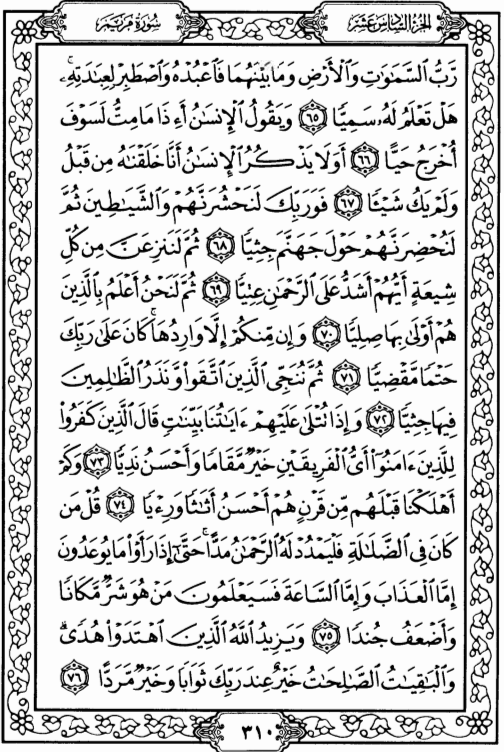 سُورَةُ مَرْيَمَ
الجُزءُ السَّادِسَ عَشَرَ
رَّبُّ ٱلسَّمَٰوَٰتِ وَٱلْأَرْضِ وَمَا بَيْنَهُمَا فَٱعْبُدْهُ وَٱصْطَبِرْ لِعِبَٰدَتِهِۦۚ
هَلْ تَعْلَمُ لَهُۥ سَمِيًّا ٦٥ وَيَقُولُ ٱلْإِنسَٰنُ أَءِذَا مَا مِتُّ لَسَوْفَ
أُخْرَجُ حَيًّا ٦٦ أَوَلَا يَذْكُرُ ٱلْإِنسَٰنُ أَنَّا خَلَقْنَٰهُ مِن قَبْلُ
وَلَمْ يَكُ شَيْـًٔا ٦٧ فَوَرَبِّكَ لَنَحْشُرَنَّهُمْ وَٱلشَّيَٰطِينَ ثُمَّ
لَنُحْضِرَنَّهُمْ حَوْلَ جَهَنَّمَ جِثِيًّا ٦٨ ثُمَّ لَنَنزِعَنَّ مِن كُلِّ
شِيعَةٍ أَيُّهُمْ أَشَدُّ عَلَى ٱلرَّحْمَٰنِ عِتِيًّا ٦٩ ثُمَّ لَنَحْنُ أَعْلَمُ بِٱلَّذِينَ
هُمْ أَوْلَىٰ بِهَا صِلِيًّا ٧٠ وَإِن مِّنكُمْ إِلَّا وَارِدُهَاۚ كَانَ عَلَىٰ رَبِّكَ
حَتْمًا مَّقْضِيًّا ٧١ ثُمَّ نُنَجِّى ٱلَّذِينَ ٱتَّقَوا۟ وَّنَذَرُ ٱلظَّٰلِمِينَ
فِيهَا جِثِيًّا ٧٢ وَإِذَا تُتْلَىٰ عَلَيْهِمْ ءَايَٰتُنَا بَيِّنَٰتٍ قَالَ ٱلَّذِينَ كَفَرُوا۟
لِلَّذِينَ ءَامَنُوٓا۟ أَىُّ ٱلْفَرِيقَيْنِ خَيْرٌ مَّقَامًا وَأَحْسَنُ نَدِيًّا ٧٣ وَكَمْ
أَهْلَكْنَا قَبْلَهُم مِّن قَرْنٍ هُمْ أَحْسَنُ أَثَٰثًا وَرِءْيًا ٧٤ قُلْ مَن
كَانَ فِى ٱلضَّلَٰلَةِ فَلْيَمْدُدْ لَهُ ٱلرَّحْمَٰنُ مَدًّاۚ حَتَّىٰٓ إِذَا رَأَوْا۟ مَا يُوعَدُونَ
إِمَّا ٱلْعَذَابَ وَإِمَّا ٱلسَّاعَةَ فَسَيَعْلَمُونَ مَنْ هُوَ شَرٌّ مَّكَانًا
وَأَضْعَفُ جُندًا ٧٥ وَيَزِيدُ ٱللَّهُ ٱلَّذِينَ ٱهْتَدَوْا۟ هُدًىۗ
وَٱلْبَٰقِيَٰتُ ٱلصَّٰلِحَٰتُ خَيْرٌ عِندَ رَبِّكَ ثَوَابًا وَخَيْرٌ مَّرَدًّا ٧٦
٣١٠